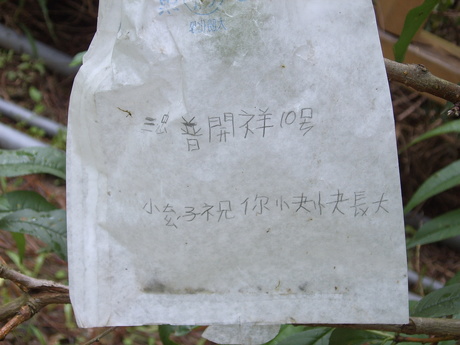 普開祥10号
小玄子祝你快快長大